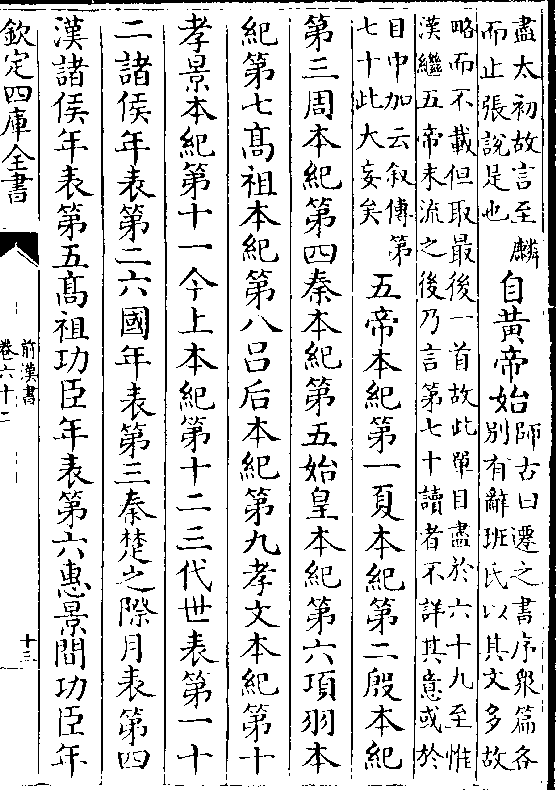 盡太初故言至麟
而止張說是也
自黃帝始
師古曰遷之書序衆篇各
別有辭班氏以其文多故
略而不載但取最後一首故此單目盡於六十九至惟
漢繼五帝末流之後乃言第七十讀者不詳其意或於
目中加云叙傳第
七十此大妄矣
五帝本紀第一夏本紀第二殷本紀
第三周本紀第四秦本紀第五始皇本紀第六項羽本
紀第七髙祖本紀第八吕后本紀第九孝文本紀第十
孝景本紀第十一今上本紀第十二三代世表第一十
二諸侯年表第二六國年表第三秦楚之際月表第四
漢諸侯年表第五髙祖功臣年表第六惠景間功臣年
欽定四庫全書
前漢書
卷六十二
十三